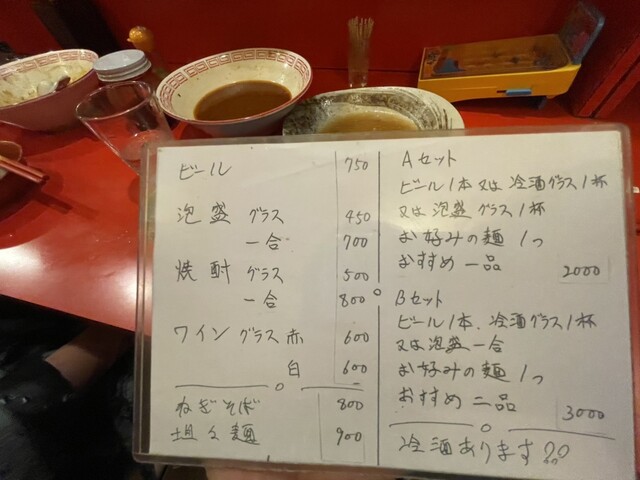 ビール 750
泡盛 グラス 450
一合 700
焼酎 グラス 500
一合 800
ワイン グラス 赤 600
白 600
ねぎそば 800
担々麺 900
Aセット
ビール1本又は冷酒グラス1杯
又は泡盛グラス1杯
お好みの麺1つ
おすすめ一品 2000
Bセット
ビール1本、冷酒グラス1杯
又は泡盛一合
お好みの麺1つ
おすすめ二品 3000
冷酒あります